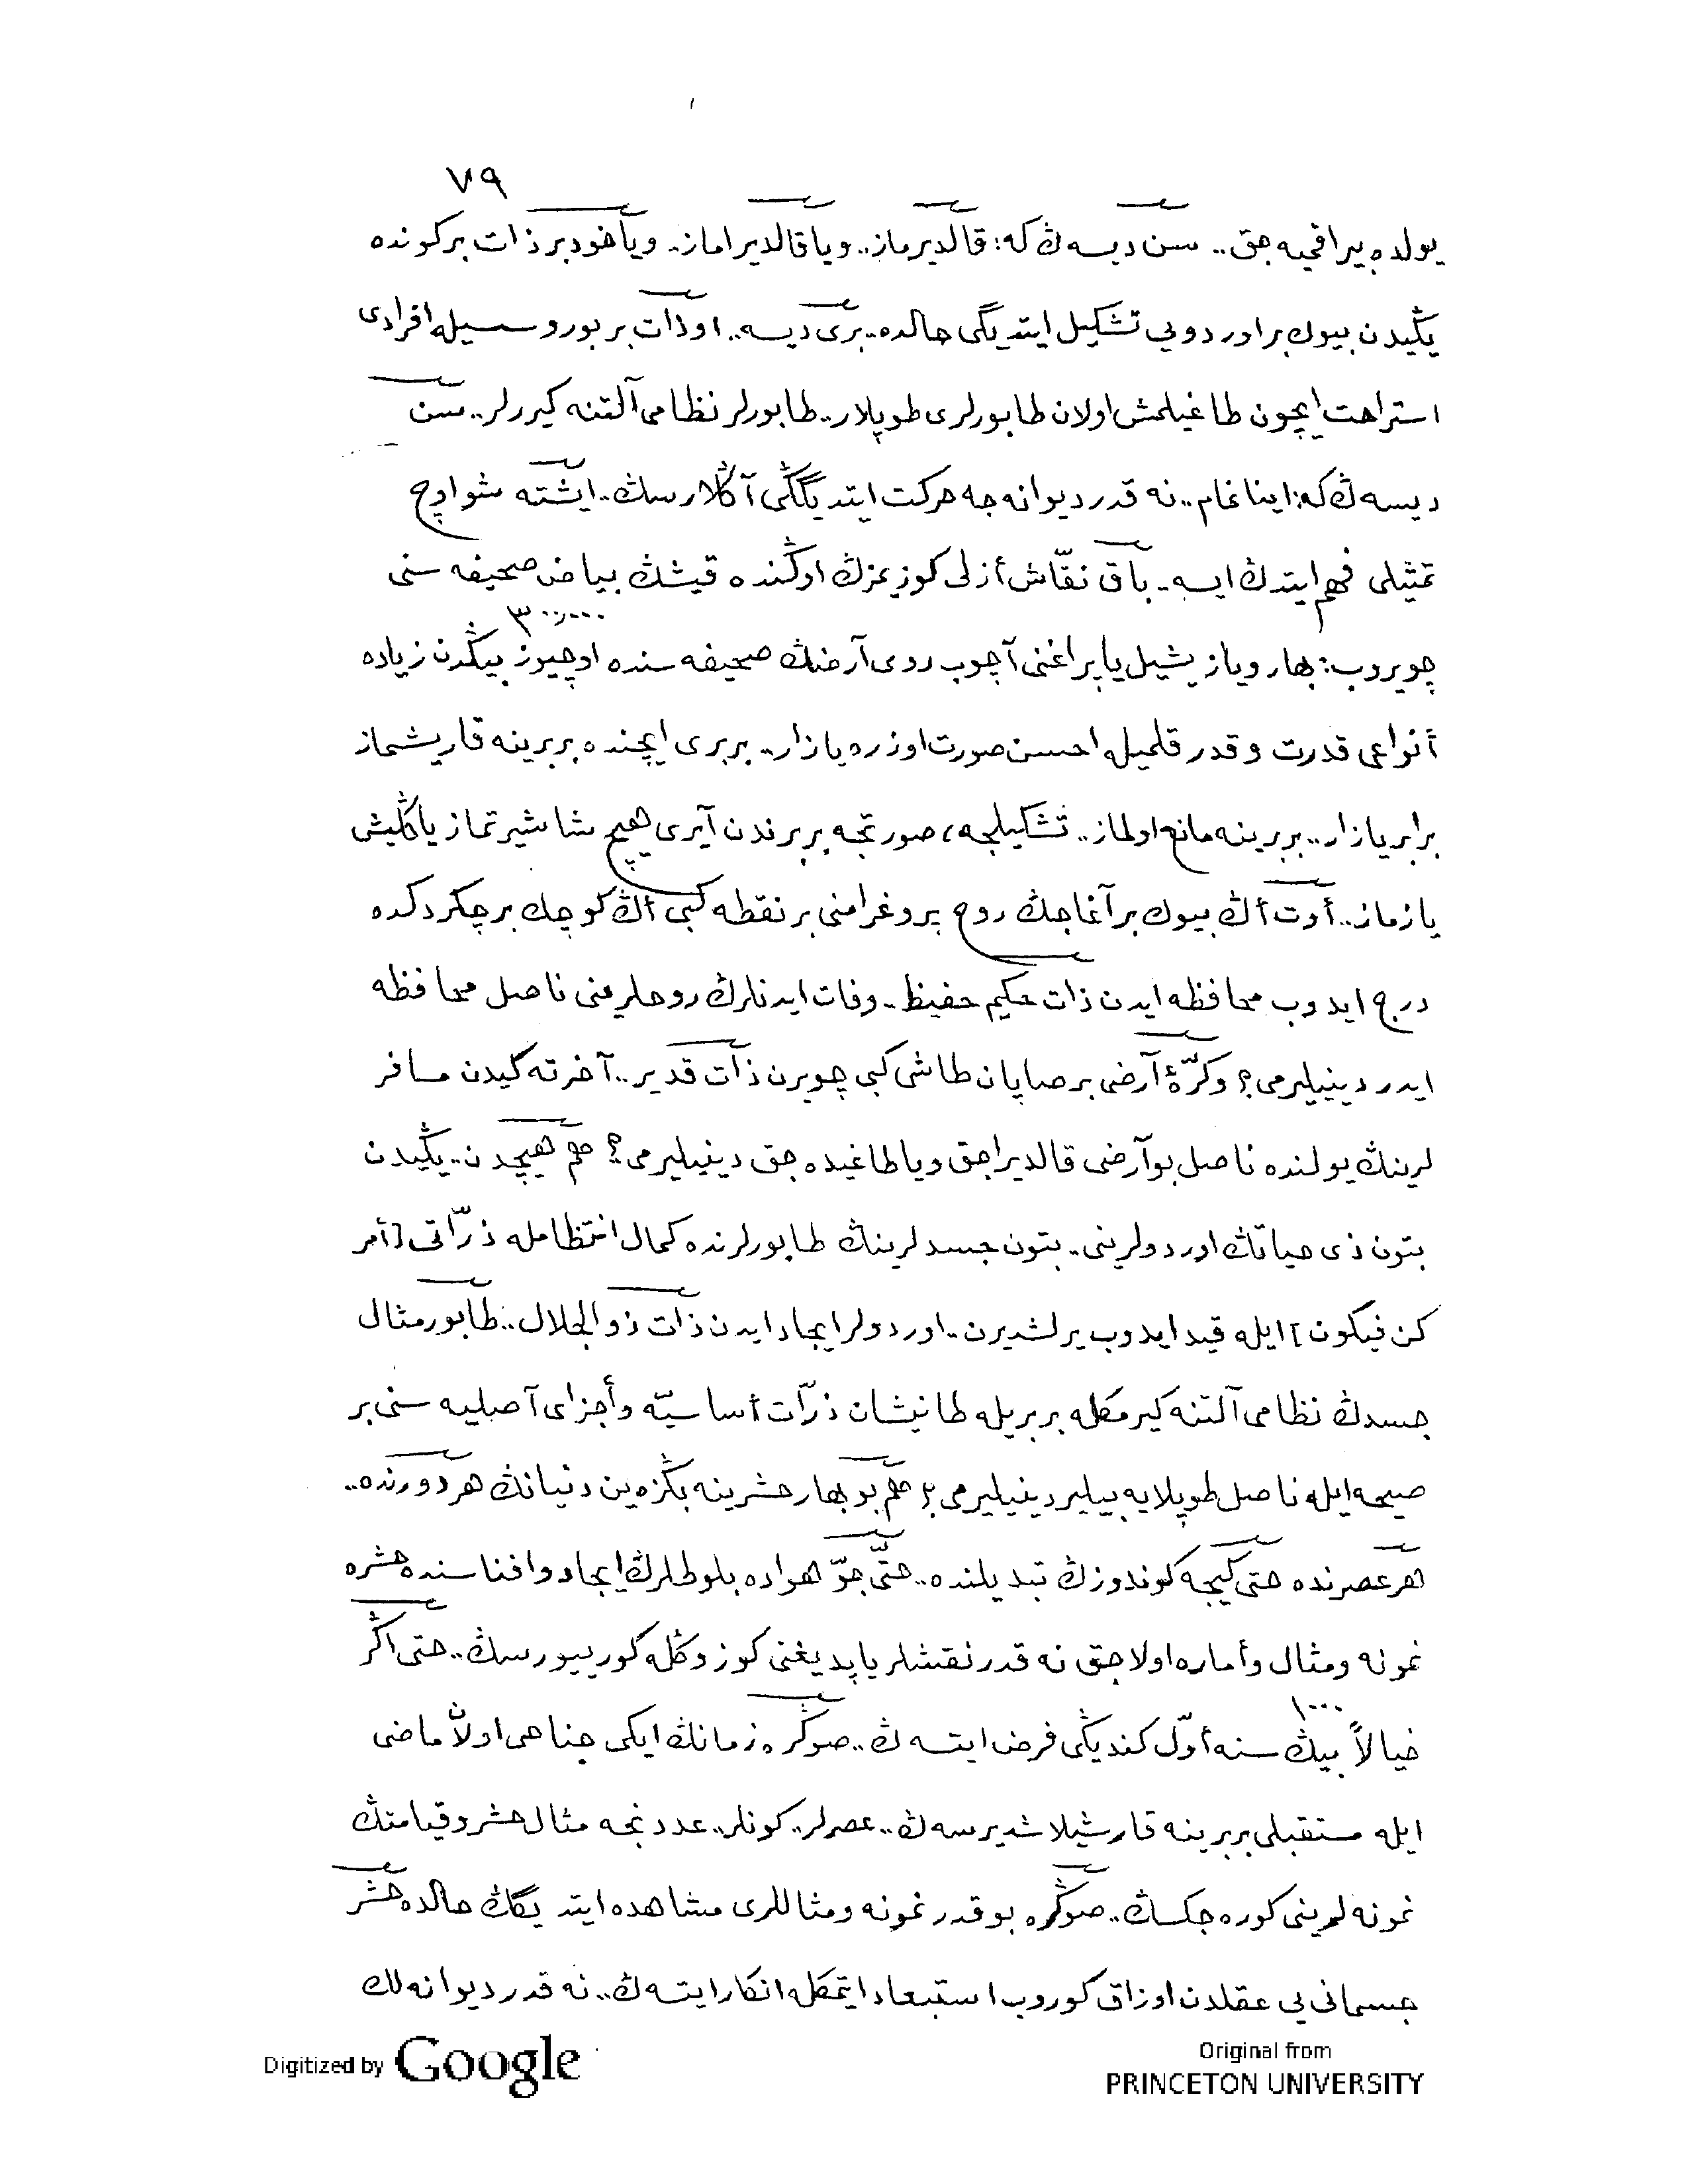 ٧٩
يولده بيراقميه جق.. سن ديسه ڭ كه: قالديرماز.. ويا قالديراماز.. وياخود بر ذات بر كونده
يڭيدن بيوك بر اوردويى تشكيل ايتديگى حالده.. برى ديسه.. او ذات بر بورو سسيله افرادى
استراحت ايچون طاغيلمش اولان طابورلرى طوپلار.. طابورلر نظامى آلتنه كيررلر.. سن
ديسه ڭ كه: اينانمام.. نه قدر ديوانه جه حركت ايتديگڭى آڭلارسڭ.. ايشته شو اوچ
تمثيلى فهم ايتدڭ ايسه.. باق نقّاش أزلى كوزيمزڭ اوڭنده قيشڭ بياض صحيفه سنى
٣٠٠,٠٠٠
چويروب: بهار وياز يشيل ياپراغنى آچوب روى أرضڭ صحيفه سنده اوچيوز بيڭدن زياده
أنواعى قدرت و قدر قلميله احسن صورت اوزره يازار.. بربرى ايچنده بربرينه قاريشماز
برابر يازار.. بربرينه مانع اولماز.. تشكيلجه، صورتجه بربرندن آيرى هيچ شاشيرتماز ياڭليش
يازماز.. أوت أڭ بيوك بر آغاجڭ روح پروغرامنى بر نقطه كبى أڭ كوچك بر چكردكده
درج ايدوب محافظه ايدن ذات حكيم حفيظ.. وفات ايدنلرڭ روحلرينى ناصل محافظه
ايدر دينيليرمى؟ وكرّۀ أرضى بر صاپان طاشى كبى چويرن ذات قدير.. آخرته كيدن مسافر
لرينڭ يولنده ناصل بو أرضى قالديراجق ويا طاغيده جق دينيليرمى؟ هم هيچدن.. يڭيدن
بتون ذى حياتڭ اوردولرينى.. بتون جسدلرينڭ طابورلرنده كمال انتظامله ذرّاتى [أمر
كن فيكون] ايله قيد ايدوب يرلشديرن.. اوردولر ايجاد ايدن ذات ذوالجلال.. طابور مثال
جسدڭ نظامى آلتنه كيرمكله بربريله طانيشان ذرّات أساسيّه وأجزاى أصليه سنى بر
صيحه ايله ناصل طوپلايه بيلير دينيليرمى؟ هم بو بهار حشرينه بڭزه ين دنيانڭ هر دورنده..
هر عصرنده حتى كيجه كوندوزڭ تبديلنده.. حتّى جوّ هواده بلوطلرڭ ايجاد وافناسنده حشره
نمونه ومثال وأماره اولاجق نه قدر نقشلر ياپديغنى كوزوڭله كورييورسڭ.. حتى اگر
١٠٠٠
خيالاً بيڭ سنه أوّل كنديڭى فرض ايتسه ڭ.. صوڭره زمانڭ ايكى جناحى اولان ماضى
ايله مستقبلى بربرينه قارشيلاشديرسه ڭ.. عصرلر.. كونلر.. عددنجه مثال حشر و قيامتڭ
نمونه لرينى كوره جكسڭ.. صوڭره بو قدر نمونه ومثاللرى مشاهده ايتديگڭ حالده حشر
جسمانى يى عقلدن اوزاق كوروب استبعاد ايتمكله انكار ايتسه ڭ.. نه قدر ديوانه لك
Digitized by Google
Original from
PRINCETON UNIVERSITY